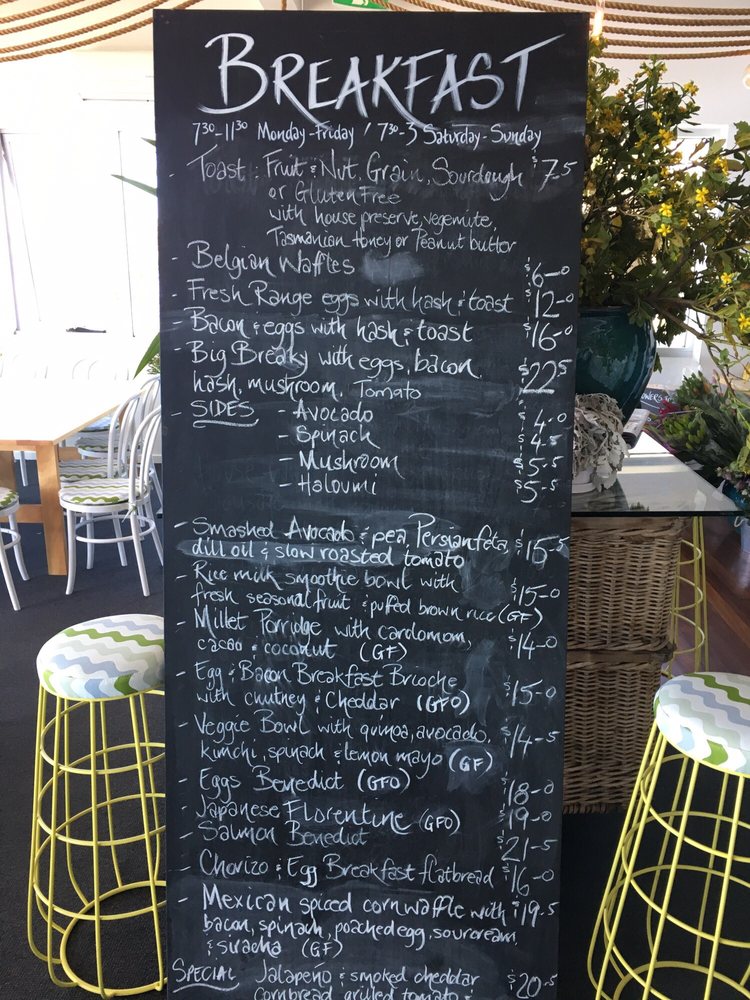 BREAKFAST
730-1130 Monday-Friday / 730-3 Saturday-Sunday
- Toast : Fruit & Nut, Grain, Sourdough $7.5
or Gluten Free
with house preserve, vegemite,
Tasmanian Honey or Peanut butter
- Belgian Waffles $6-0
- Fresh Range eggs with hash & toast $12-0
- Bacon & eggs with hash & toast $16-0
- Big Breaky with eggs, bacon, $22 5
hash, mushroom, Tomato
- SIDES - Avocado $4.0
- Spinach $4.5
- Mushroom $5-5
- Haloumi $5-5
- Smashed Avocado & pea, Persian feta, $15-5
dill oil & slow roasted tomato
- Rice milk smoothie bowl with
fresh seasonal fruit & puffed brown rice (GF) $15-0
- Millet Porridge with cardomom, $14-0
cacao & coconut (GF)
- Egg & Bacon Breakfast Brioche $15-0
with chutney & Cheddar (GFO)
- Veggie Bowl with quinoa, avocado, $14-5
kimchi, spinach & lemon mayo (GF)
- Eggs Benedict (GFO) $18-0
- Japanese Florentine (GFO) $19-0
- Salmon Benedict $21-5
- Chorizo & Egg Breakfast flatbread $16-0
- Mexican spiced corn waffle with $19.5
bacon, spinach, poached egg, sourcream,
& siracha (GF)
SPECIAL Jalapeno & smoked cheddar $20.5
cornbread grilled tomato &